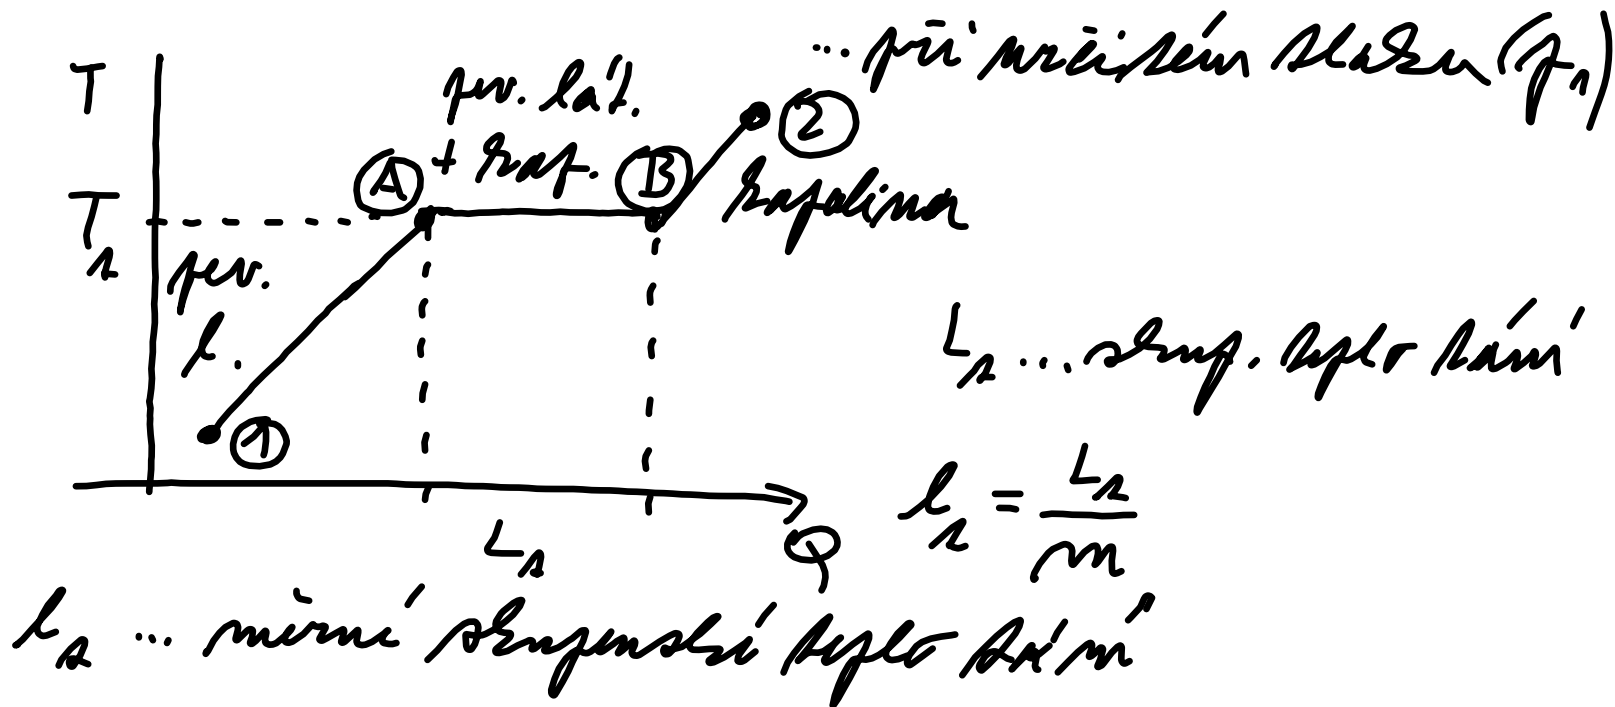 ... při určitém tlaku (pₙ)
T
pev. lát.
+ kap.
A
B
2
kapalina
T
pev.
l.
1
Lₜ ... skup. teplo tání
lₜ = Lₜ / m
Lₜ
Q
lₜ ... měrné skupenské teplo tání